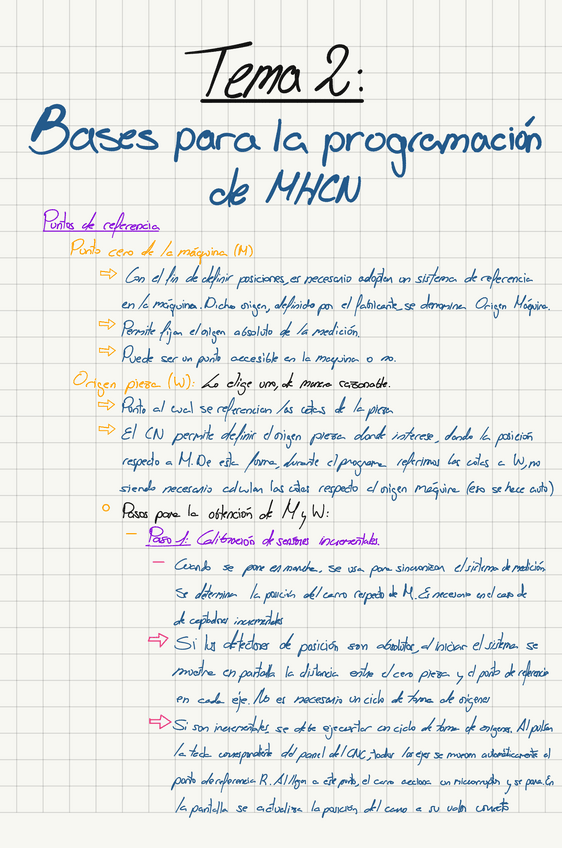 Tema 2:
Bases para la programación
de MHCN
Puntos de referencia
Punto cero de la máquina (M)
⇨ Con el fin de definir posiciones, es necesario adoptar un sistema de referencia
en la máquina. Dicho origen, definido por el fabricante, se denomina Origen Máquina.
⇨ Permite fijar el origen absoluto de la medición.
⇨ Puede ser un punto accesible en la maquina o no.
Origen pieza (W): Lo elige uno, de manera razonable.
⇨ Punto al cual se referencian las cotas de la pieza
⇨ El CN permite definir el origen pieza donde interese, dando la posición
respecto a M. De esta forma, durante el programa referimos las cotas a W, no
siendo necesario calcular las cotas respecto al origen máquina (eso se hace auto)
○ Pasos para la obtención de M y W:
— Paso 1: Calibración de sensores incrementales.
— Cuando se pone en marcha, se usa para sincronizar el sistema de medición
Se determina la posición del carro respecto de M. Es necesario en el caso de
de captadores incrementales
⇨ Si los detectores de posición son absolutos, al iniciar el sistema se
muestra en pantalla la distancia entre el cero pieza y el punto de referencia
en cada eje. No es necesario un ciclo de toma de origenes
⇨ Si son incrementales se debe ejecutar un ciclo de toma de origenes. Al pulsar
la tecla correspondiente del panel del CNC, todos los ejes se mueven automáticamente al
punto de referencia R. Al llegar a este punto, el carro acciona un microrruptor y se para. En
la pantalla se actualiza la posición del carro a su valor correcto